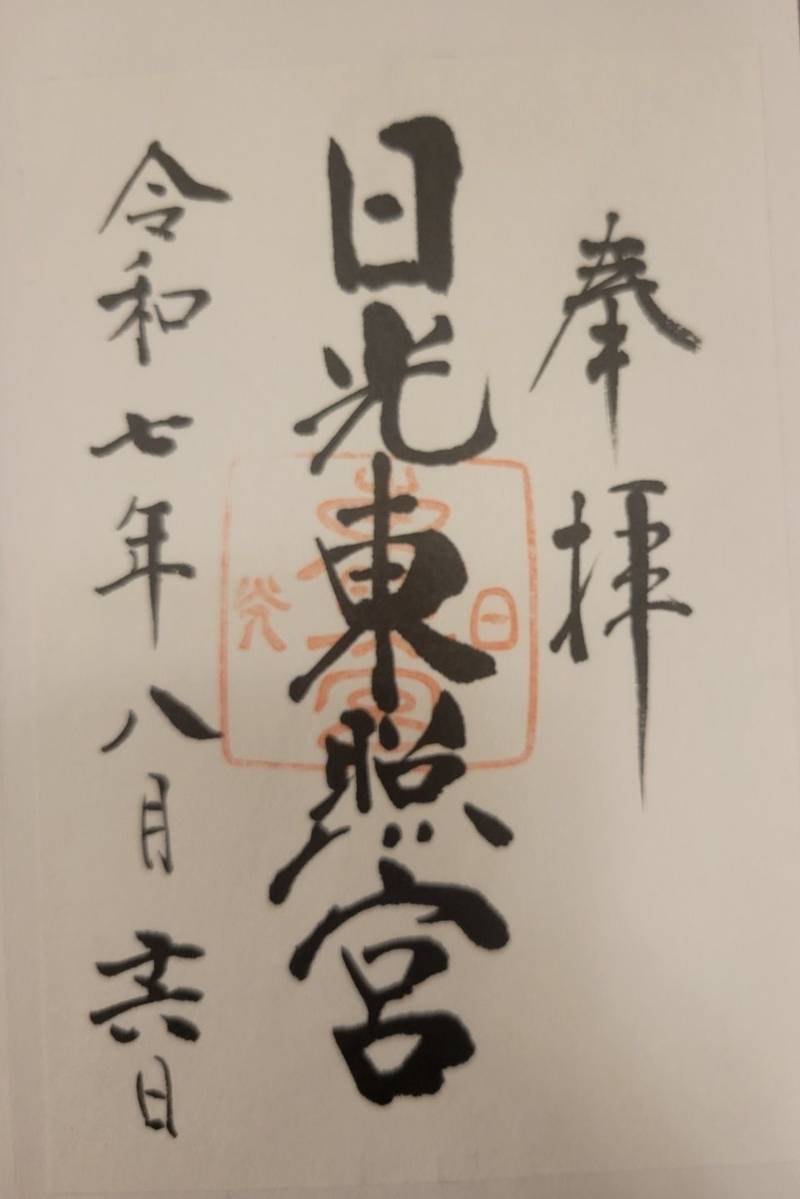 奉拝
日光東照宮
令和七年八月 日
日
光